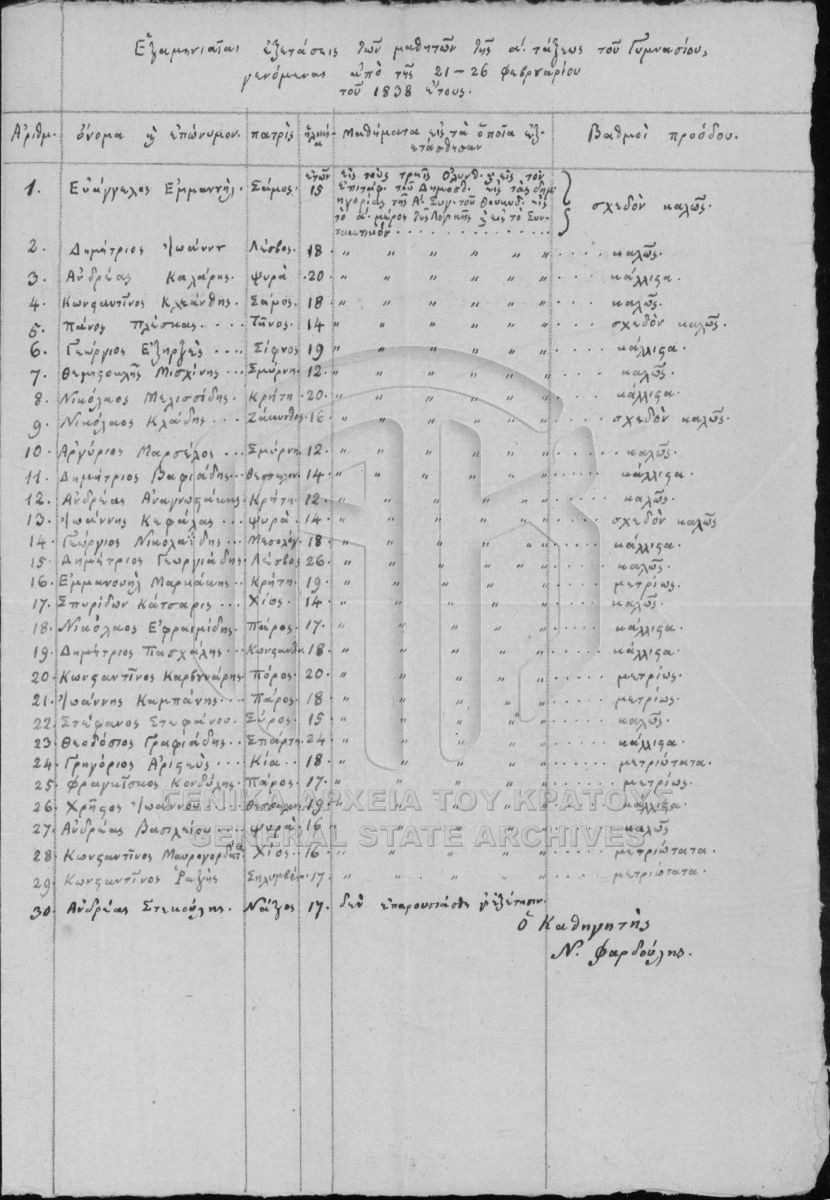 Ἑξαμηνιαῖαι ἐξετάσεις τῶν μαθητῶν τῆς α΄. τάξεως τοῦ Γυμνασίου,
γενόμεναι ἀπὸ τῆς 21 – 26 Φεβρουαρίου
τοῦ 1838 ἔτους.
Ἀριθμ. ὄνομα ϗ ἐπώνυμον. πατρὶς ἡλικία Μαθήματα εἰς τὰ ὁποῖα ἐξ-
ετάσθησαν Βαθμοὶ προόδου.
1. Εὐάγγελος Ἐμμανυὴλ. Σάμος. ἐτῶν 15 εἰς τοὺς τρεῖς Ὀλυνθ. ϗ εἰς τὸν
ἐπιτάφ. τοῦ Δημοσθ. εἰς τὰς δημ-
ηγορίας τῆς Α΄. Ξυγ. τοῦ Θουκυδ. εἰς
τὸ α΄. μέρος τῆς Λογικῆς ϗ εἰς τὸ Συν-
τακτικόν. . . . . . . . . . . σχεδὸν καλῶς.
2. Δημήτριος Ἰωάννου Λέσβος. 18 " " " " " . . . . καλῶς.
3. Ἀνδρέας Καλάρης. Ψυρὰ .20. " " " " " . . . . κάλλιςα.
4. Κωνςαντῖνος Κλεάνθης. Σάμος. 18 " " " " " . . . . καλῶς.
5. Πάνος Πλέσκας. . . . Τῆνος. 14 " " " " " . . . . σχεδὸν καλῶς.
6. Γεώργιος Ἐξηρζὲς . . . . Σίφνος 19 " " " " " . . . . κάλλιςα.
7. Θεμιςοκλῆς Μισχίνης . . . Σμύρνη. 12. " " " " " . . . . καλῶς.
8. Νικόλαος Μελισσίδης. Κρήτη .20. " " " " " . . . . κάλλιςα.
9. Νικόλαος Κλάδης . . . Ζάκυνθος. 16. " " " " " . . . . σχεδὸν καλῶς.
10. Ἀργύριος Μαρσέλος . . . Σμύρνη. 12. " " " " " . . . . καλῶς.
11. Δημήτριος Βαφιάδης . . . Θεσσαλον. 14. " " " " " . . . . κάλλιςα.
12. Ἀνδρέας Ἀναγνωςάκης. Κρήτη. 12. " " " " . . . . καλῶς.
13. Ἰωάννης Κεφάλας. . . . Ψυρὰ . 14. " " " " . . . . σχεδὸν καλῶς
14. Γεώργιος Νικολαΐδης. . . Μεσολόγ. 18. " " " " . . . . κάλλιςα.
15. Δημήτριος Γεωργιάδης. Λέσβος. 26. " " " " . . . . καλῶς.
16. Ἐμμανουὴλ Μαρκάκης. . . Κρήτη. 19. " " " " . . . . μετρίως.
17. Σπυρίδων Κάτσαρις . . . Χίος. 14. " " " " . . . . καλῶς.
18. Νικόλαος Ἐφραιμίδης. Πάρος. 17. " " " " . . . . κάλλιςα.
19. Δημήτριος Πασχάλης. . . Κωνςαντιν. 18. " " " " . . . . κάλλιςα.
20. Κωνςαντῖνος Καρβυνάρης. Πόρος. 20. " " " " . . . . μετρίως.
21. Ἰωάννης Καμπάνης. . . . Πάρος. 18 " " " " . . . . μετρίως.
22. Στέφανος Στεφάνου. Σύρος. 15 " " " " . . . . καλῶς.
23. Θεοδόσιος Γραφιάδης . . . Σπάρτη. 24. " " " " . . . . κάλλιςα.
24. Γρηγόριος Ἀριςεὺς . . . . Κία . . 18 . " " " " . . . . μετριώτατα.
25. Φραγκῖσκος Κονδύλης. Πάρος. 17. " " " " . . . . μετρίως.
26. Χρῆςος Ἰωάννου . . . Θεσσαλον. 19. " " " " . . . . κάλλιςα.
27. Ἀνδρέας Βασιλείου . . . Ψυρὰ. 16 " " " " . . . . καλῶς
28. Κωνςαντῖνος Μαυρογορδάτος Χίος. 16. " " " " . . . . μετριώτατα.
29. Κωνςαντῖνος Ῥαζῆς Σηλυμβρία. 17. " " " " . . . . μετριώτατα.
30. Ἀνδρέας Στεκούλης. Νάξος 17. δὲν ἐπαρουσιάσθη
ὁ Καθηγητὴς
Ν. Φαρδούλης.
ΓΕΝΙΚΑ ΑΡΧΕΙΑ ΤΟΥ ΚΡΑΤΟΥΣ
GENERAL STATE ARCHIVES